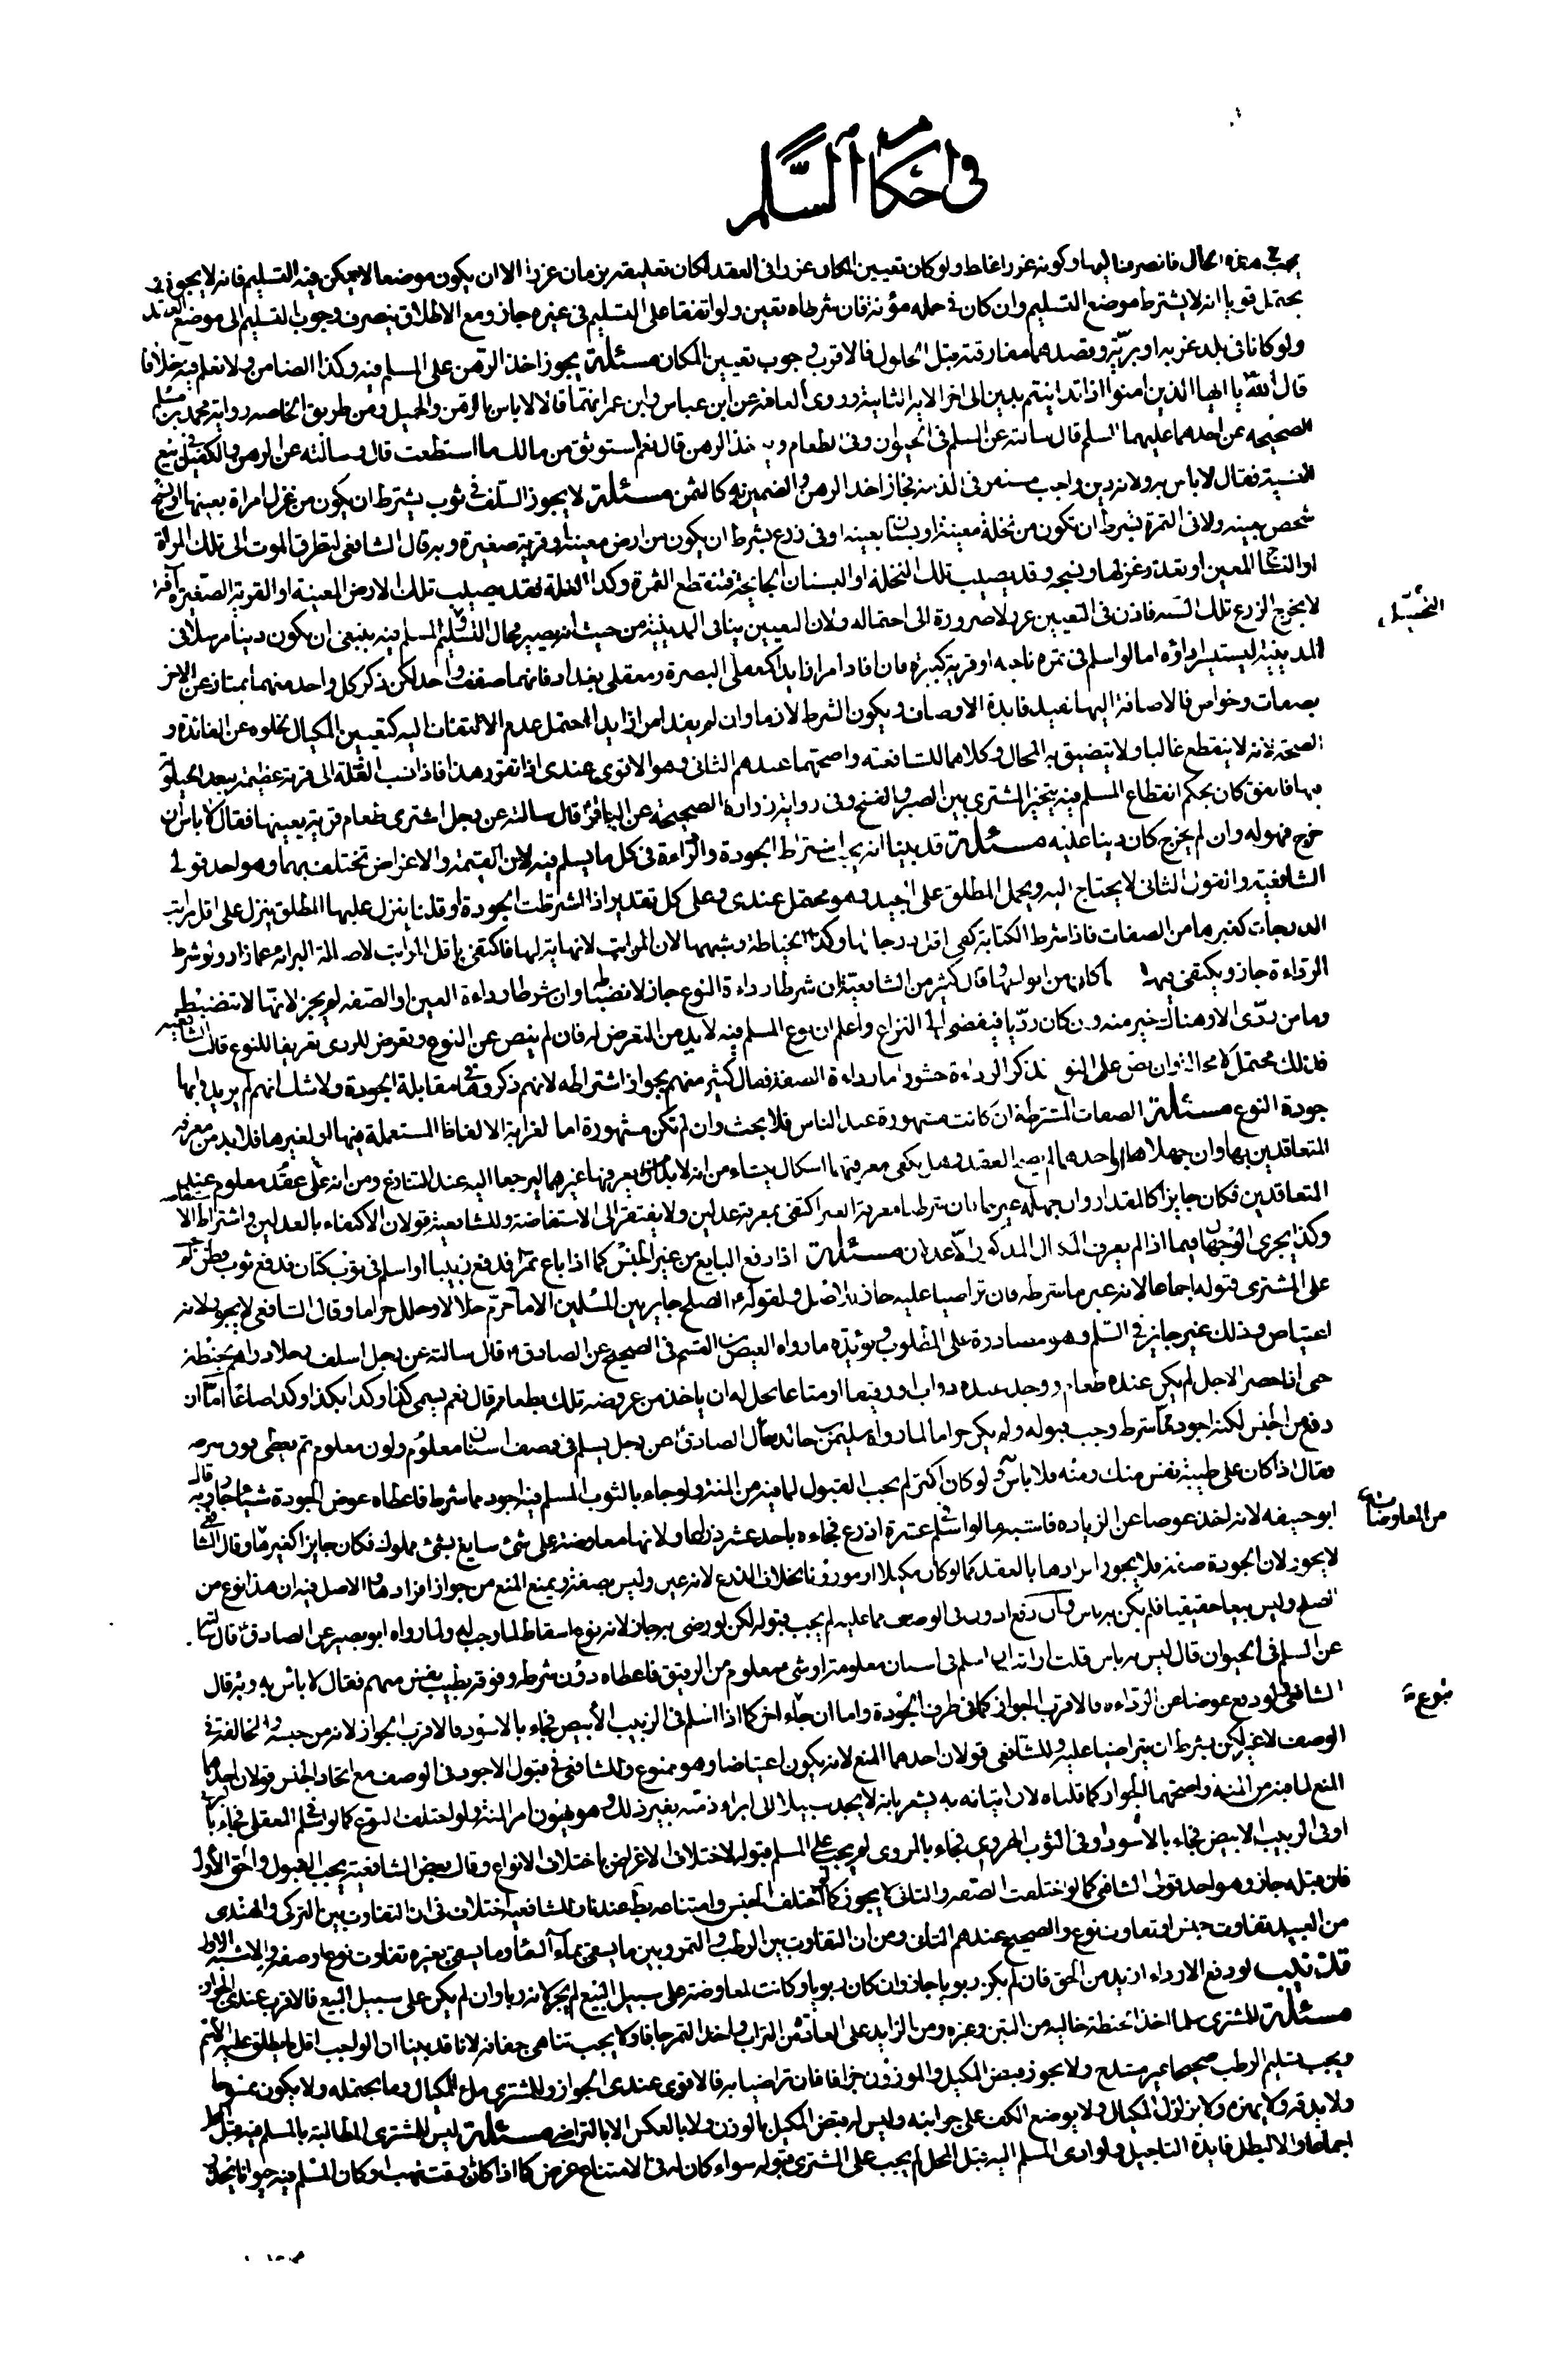 في احكام السلم
الحال فانصرفنا اليها وكونه غررا غلط ولو كان تعيين المكان غررا في العقد لكان تعليقه بزمان غررا الا ان يكون موضعا لا يمكن فيه التسليم فانه لا يجوز
يحتمل قويا انه لا يشترط موضع التسليم وان كان في حمله مؤنة فان شرطاه تعين ولو اتفقا على التسليم في غيره جاز ومع الاطلاق ينصرف وجوب التسليم الى موضع العقد
ولو كانا في بلد غربة او برية وقصدهما مفارقته قبل الحلول فالاقرب وجوب تعيين المكان مسئلة يجوز اخذ الرهن على المسلم فيه وكذا الضامن ولا نعلم فيه خلافا
قال الله يا ايها الذين امنوا اذا تداينتم بدين الى اخر الاية الثانية وروى العامة عن ابن عباس وابن عمر انهما قالا لا باس بالرهن والحميل ومن طريق الخاصة رواية محمد بن مسلم
الصحيحة عن احدهما عليهما السلم قال سالته عن السلم في الحيوان وفي الطعام و الرهن قال نعم استوثق من مالك ما استطعت قال وسالته عن الرهن والكفيل في بيع
النسية فقال لا باس به ولانه دين واجب مستقر في الذمة فجاز اخذ الرهن والضمين به كالثمن مسئلة لا يجوز السلف في ثوب يشترط ان يكون من غزل امراة بعينها او نسج
شخص بعينه ولا في الثمرة بشرط ان تكون من نخلة معينة او بستان بعينه او في زرع بشرط ان يكون من ارض معينة او قرية صغيرة وبه قال الشافعي لتطرق الموت الى تلك المراة
او النساج المعين او تعذر غزلها ونسجه وقد يصيب تلك النخلة او البستان الجايحة فتنقطع الثمرة وكذا الغلة فقد يصيب تلك الارض المعينة او القرية الصغيرة آفة
لا يخرج الزرع تلك السنة فاذن في التعيين غرر لا ضرورة الى احتماله ولان التعيين ينافي المدينية من حيث انه يصير محال التسليم المسلم فيه ينبغي ان يكون دينا مرسلا في
المدينية ليتيسر اداؤه اما لو اسلم في تمرة ناحية او قرية كبيرة فان افاد امرا زايدا كمعقلي البصرة ومعقلي بغداد فانهما صنف واحد لكن ذكر كل واحد منهما يمتاز عن الاخر
بصفات وخواص فالاضافة اليها تفيد فايدة الاوصاف ويكون الشرط لازما وان لم يفد امرا زايدا احتمل عدم الالتفات اليه كتعيين المكيال لخلوه عن الفائدة و
الصحة لانه لا ينقطع غالبا ولا يتضيق به المحال وكلاهما للشافعية واصحهما عندهم الثاني وهو الاقوى عندي اذا تقرر هذا فاذا نسب الغلة الى قرية عظيمة
بها فاتفق كان بحكم انقطاع المسلم فيه يتخير المشتري بين الصبر والفسخ وفي رواية زرارة الصحيحة عن الباقر قال سالته عن رجل اشترى طعام قرية بعينها فقال لا باس ان
خرج فهو له وان لم يخرج كان دينا عليه مسئلة قد بينا انه يجب اشتراط الجودة والرداءة في كل ما يسلم فيه لان القيمة والاغراض تختلف بهما وهو احد قولي
الشافعية والقول الثاني لا يحتاج اليه ويحمل المطلق على الجيد وهو محتمل عندي وعلى كل تقدير اذا اشترطت الجودة او قلنا ينزل عليها المطلق ينزل على اقل مراتب
الدرجات كغيرها من الصفات فاذا شرط الكتابة كفى اقل درجاتها وكذا الخياطة وشبهها لان المراتب لا نهاية لها فاكتفي باقل المراتب لاصالة البراءة عما زاد ولو شرط
الرداءة جاز ويكتفي بها وقال كثير من الشافعية ان شرطا رداءة النوع جاز لانضباطه وان شرطا رداءة العين او الصفة لم يجز لانها لا تنضبط
وما من ردي الا وهناك خير منه وان كان رديا فيفضي الى النزاع واعلم ان نوع المسلم فيه لا بد من التعرض له فان لم ينص عن النوع وتعرض للردى تعريفا للنوع قالت الشافعية
فذلك محتمل لا محالة وان نص على النوع فذكر الرداءة حشو واما رداءة الصفة فقال كثير منهم بجواز اشتراطه لانهم ذكروها في مقابلة الجودة ولا شك انهم لم يريدوا بها
جودة النوع مسئلة الصفات المشترطة ان كانت مشهورة عند الناس فلا بحث وان لم تكن مشهورة اما لغرابة الالفاظ المستعملة فيها او لغيرها فلا بد من معرفة
المتعاقدين بها وان جهلاها او احدهما لم يصح العقد وهل يكفي معرفتهما اشكال ينشاء من انه لا بد ممن يعرفها غيرهما ليرجعا اليه عند التنازع ومن انه على عقد معلوم عند
المتعاقدين فكان جايزا كالمقدار وان جهله غيرهما فان شرطنا معرفة الغير اكتفي بمعرفة عدلين ولا يفتقر الى الاستفاضة وللشافعية قولان الاكتفاء بالعدلين واشتراط الاستفاضة
وكذا يجري الوجهان فيما اذا لم يعرف المكيال المذكور الا عدلان مسئلة اذا دفع البايع من غير الجنس كما اذا باع تمرا فدفع زبيبا او اسلم في ثوب كتان فدفع ثوب قطن لم
على المشتري قبوله اجماعا لانه غير ما شرطه فان تراضيا عليه جاز ولقوله الصلح جايز بين المسلمين الا ما حرم حلالا وحلل حراما وقال الشافعي لا يجوز لانه
اعتياض وذلك غير جايز في السلم وهو مصادرة على المطلوب ويؤيده ما رواه العيص بن القسم في الصحيح عن الصادق قال سالته عن رجل اسلف رجلا دراهم بحنطة
حتى اذا حضر الاجل لم يكن عنده طعام ووجد عنده دواب ورقيقا او متاعا يحل له ان ياخذ من عروضه تلك بطعامه قال نعم يسمي كذا وكذا بكذا وكذا صاعا اما ان
دفع من الجنس لكنه اجود مما شرط وجب قبوله ولم يكن حراما لما رواه سليمن بن خالد الصادق عن رجل يسلم في وصف اسنان معلوم ولون معلوم ثم يعطى دون شرطه
فقال اذا كان على طيبة نفس منك ومنه فلا باس ولو كان اكثر لم يجب القبول لما فيه من المنة ولو جاء بالثوب المسلم فيه اجود مما شرط فاعطاه عوض الجودة شيئا جاز وبه قال
ابو حنيفة لانه اخذ عوضا عن الزيادة فاشبه ما لو اسلم في عشرة اذرع فجاءه باحد عشر ذراعا ولانها معاوضة على شئ سايغ بشئ مملوك فكان جايزا كغيره وقال الشافعي
لا يجوز لان الجودة صفة فلا يجوز افرادها بالعقد كما لو كان مكيلا او موزونا بخلاف الذرع لانه عين وليس بصفة ويمنع المنع من جواز افرادها والاصل فيه ان هذا نوع من
الصلح وليس بيعا حقيقيا فلم يكن به باس وان دفع ادون في الوصف مما عليه لم يجب قبوله لكن لو رضي به جاز لانه نوع اسقاط لما وجب له ولما رواه ابو بصير عن الصادق قال سالته
عن السلم في الحيوان قال ليس به باس قلت ارايت ان اسلم في اسنان معلومة او شئ معلوم من الرقيق فاعطاه دون شرطه وفوقه بطيب نفس منهم فقال لا باس به وبه قال
الشافعي ولو دفع عوضا عن الرداءة فالاقرب الجواز كما في طرف الجودة واما ان جاء اخر كما اذا اسلم في الزبيب الابيض فجاء بالاسود فالاقرب الجواز لانه من جنسه والمخالفة في
الوصف لا غير لكن بشرط ان يتراضيا عليه وللشافعي قولان احدهما المنع لانه يكون اعتياضا وهو ممنوع وللشافعي في قبول الاجود في الوصف مع اتحاد الجنس قولان احدهما
المنع لما فيه من المنة واصحهما الجواز كما قلناه لان اتيانه به يشعر بانه لا يجد سبيلا الى ابراء ذمته بغير ذلك وهو يهون امر المنة ولو اختلف النوع كما لو اسلم في المعقلي فجاء
او في الزبيب الابيض فجاء بالاسود او في الثوب الهروي فجاء بالمروي لم يجب على المسلم قبوله لاختلاف الاغراض باختلاف الانواع وقال بعض الشافعية يجب القبول والحق الاول
فان قبله جاز وهو احد قولي الشافعي كما لو اختلفت الصفة والثاني لا يجوز كما لو اختلف الجنس وامتناعه عندنا وللشافعية اختلاف في ان التفاوت بين التركي والهندي
من العبيد تفاوت جنس او تفاوت نوع والصحيح عندهم الثاني ومن ان التفاوت بين الرطب والتمر وبين ما يسقى بماء السماء وما يسقى بغيره تفاوت نوع او صفة والاشبه الاول
تذنيب لو دفع الارداء ازيد من الحق فان لم يكن ربويا جاز وان كان ربويا وكانت المعاوضة على سبيل البيع لم يجز لانه ربا وان لم يكن على سبيل البيع فالاقرب عندي الجواز
مسئلة للمشتري سلما اخذ الحنطة خالية من التبن وغيره ومن الزايد على العادة من التراب واخذ التمر جافا ولا يجب تناهي جفافه لانا قد بينا ان الواجب اقل ما يطلق عليه الاسم
ويجب تسليم الرطب صحيحا غير مشدخ ولا يجوز قبض المكيل والموزون جزافا فان تراضيا به فالاقوى عندي الجواز وللمشتري ملء المكيال وما يحتمله ولا يكون ممسوحا
ولا يدقه ولا يهزه ولا يزلزل المكيال ولا يوضع الكف على جوانبه وليس له قبض المكيل بالوزن ولا بالعكس الا بالتراضي مسئلة ليس للمشتري المطالبة بالمسلم فيه قبل
اجماعا والا لبطل فايدة التاجيل ولو ادى المسلم اليه قبل المحل لم يجب على المشتري قبوله سواء كان له في الامتناع غرض كما اذا كان وقت نهب او كان المسلم فيه حيوانا
من المعاوضات